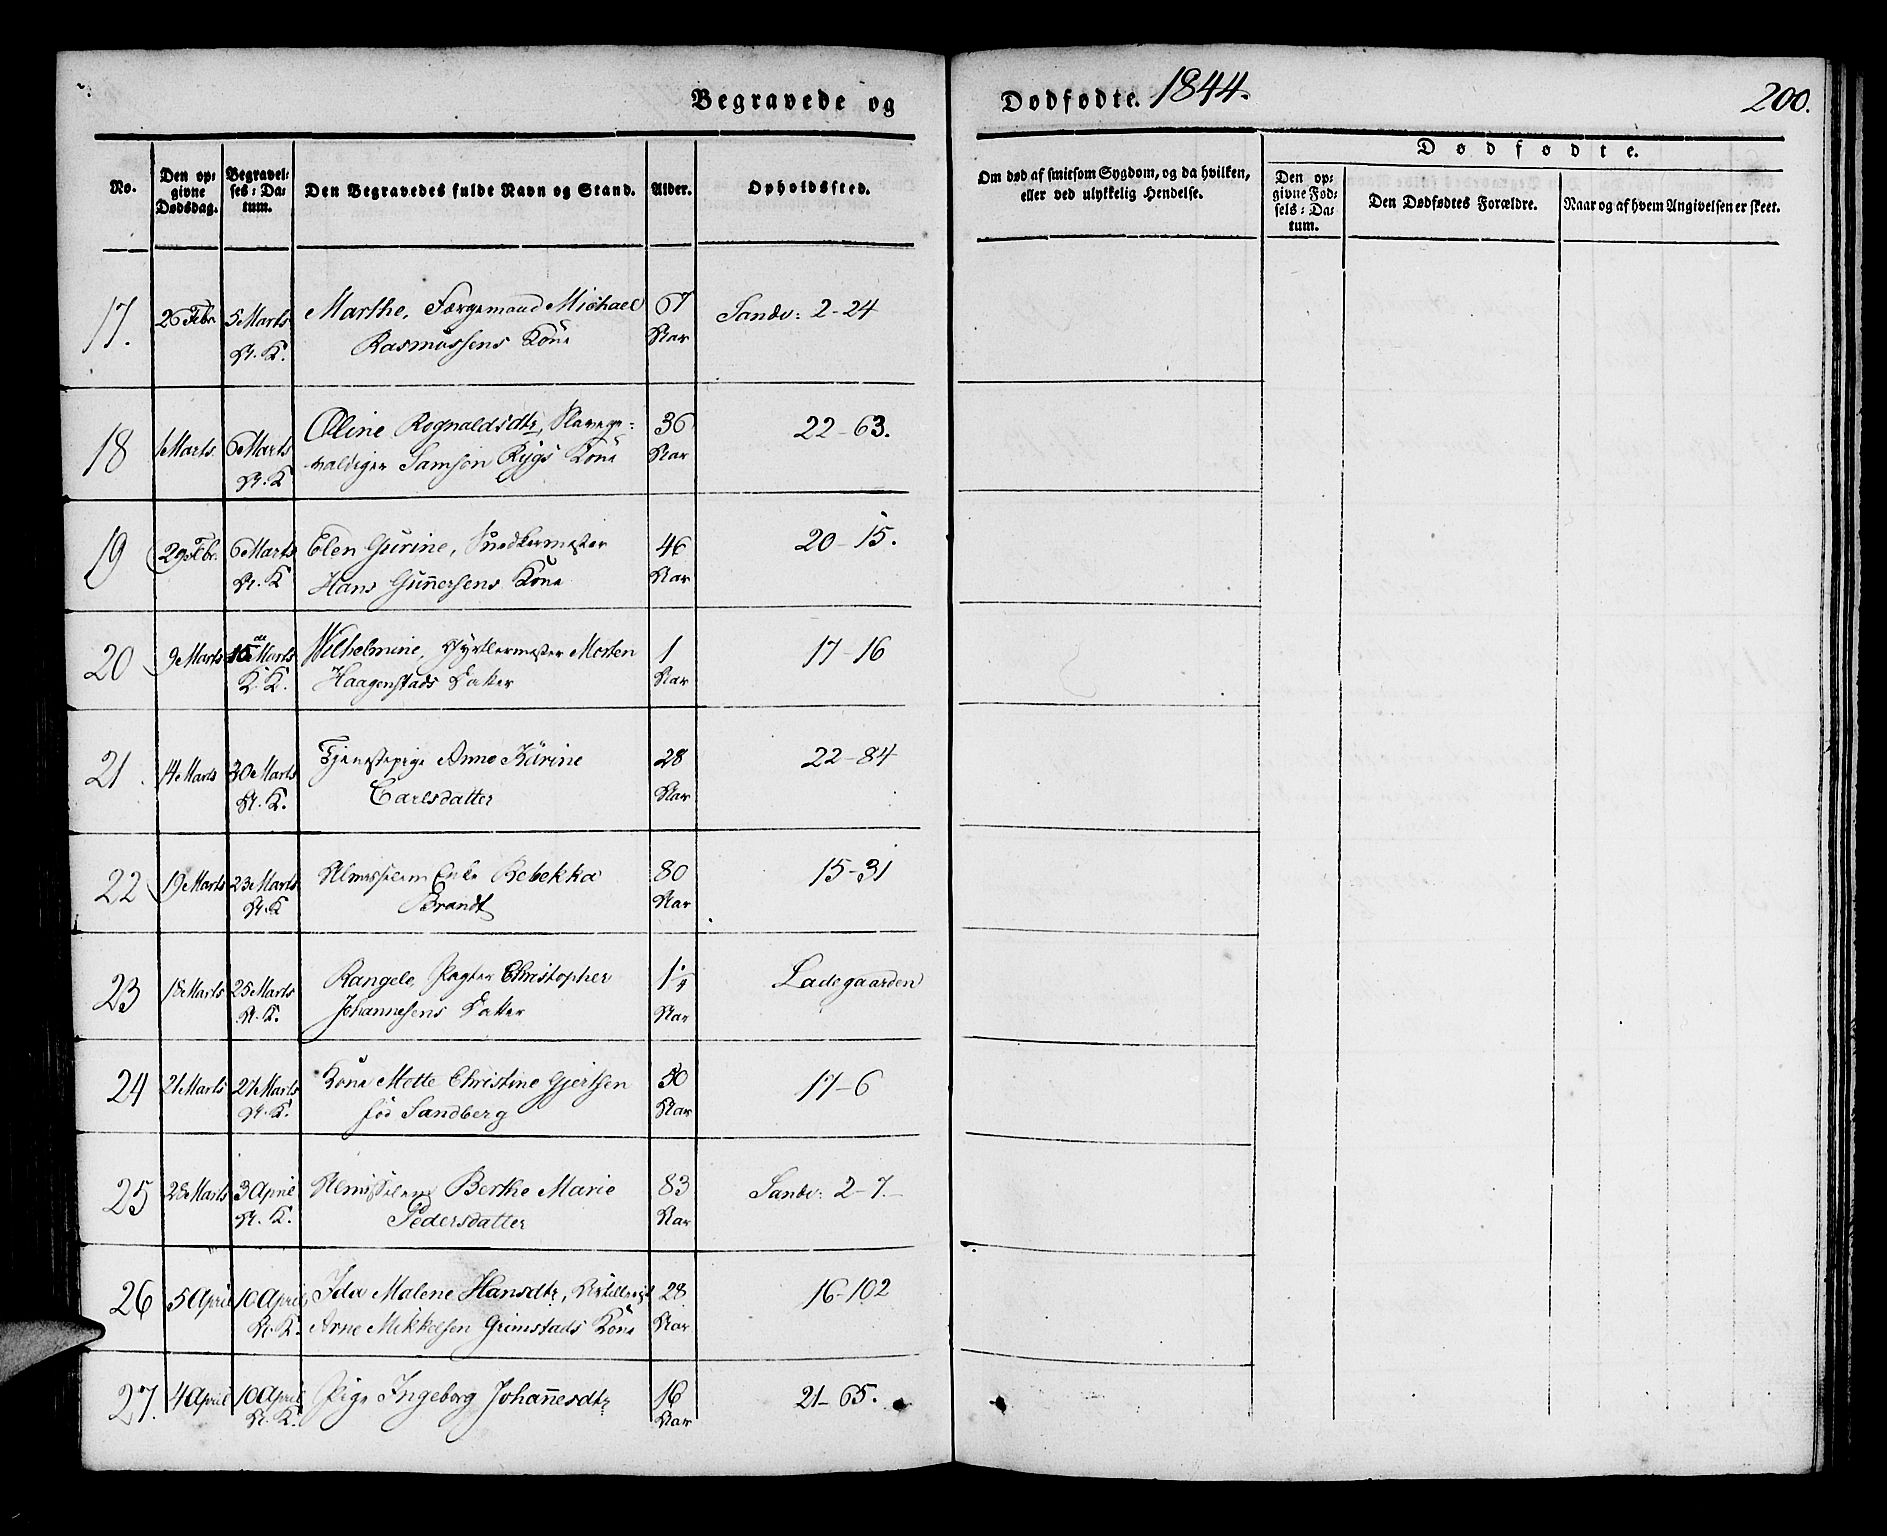 Begravede og Dødfødte. 1844. 200.
No.
Den op-
givne
Dødsdag.
Begravel-
ses-Da-
tum.
Den Begravedes fulde Navn og Stand.
Alder.
Opholdssted.
Om død af smitsom Sygdom, og da hvilken,
eller ved ulykkelig Hendelse.
Dødfødte.
Den op-
givne Fød-
sels-Da-
tum.
Den Dødfødtes Forældre.
Naar og af hvem Angivelsen er skeet.
17. 26 Febr. 5 Marts Marthe, Færgemand Michael 67 Sandv: 2-24
A. K. Rasmussens Kone Aar
18 1 Marts 6 Marts Oline Rognaldsdtr, Slavege- 36 22-63.
A. K valdiger Samson Rygs Kone Aar
19 29 Febr. 6 Marts Elen Gurine, Snedkermester 46 20-15.
A. K Hans Gunnersens Kone Aar
20 9 Marts 15 Marts Wilhelmine, Gjørtlermester Morten 1 17-16
K. K. Haagenstads Datter Aar
21. 14 Marts 20 Marts Tjenestepige Anne Karine 28 22-84
A. K. Carlsdatter Aar
22 19 Marts 23 Marts Almisselem Enke Rebekka 80 15-31
A. K Brandt Aar
23 18 Marts 25 Marts Rangele, Pagter Christopher 1 1/4 Ladegaarden
A. K. Johannesens Datter Aar
24 21 Marts 27 Marts Kone Mette Christine Gjertsen 50 17-6
A. K. fød Sandberg Aar
25 28 Marts 3 April Almisselem Berthe Marie 83 Sandv: 2-7.
A. K. Pedersdatter Aar
26 5 April 10 April Ida Malene Hansdtr, 28 16-102
A. K. Arne Mikkelsen Grimstads Kone Aar
27. 4 April 10 April Pige Ingeborg Johannesdtr 16 21-65.
A. K. Aar